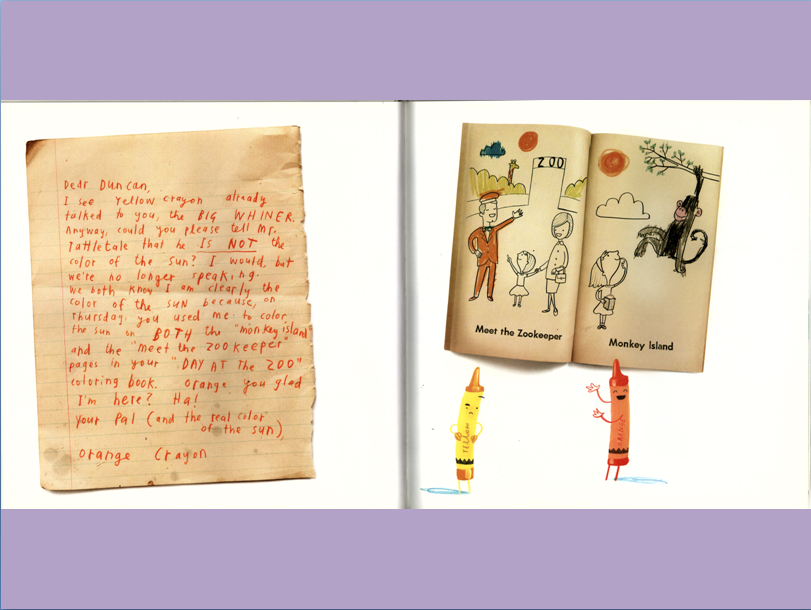 Dear Duncan,
I see Yellow crayon already
talked to you, the BIG WHINER.
Anyway, could you please tell Mr.
Tattletale that he IS NOT the
color of the sun? I would, but
we're no longer speaking.
We both know I am clearly the
color of the sun because, on
Thursday, you used me to color
the sun on BOTH the "monkey island"
and the "meet the zookeeper"
pages in your "DAY AT THE ZOO"
coloring book. Orange you glad
I'm here? Ha!
Your Pal (and the real color
of the sun)
Orange Crayon
ZOO
Meet the Zookeeper
Monkey Island
YELLOW
ORANGE